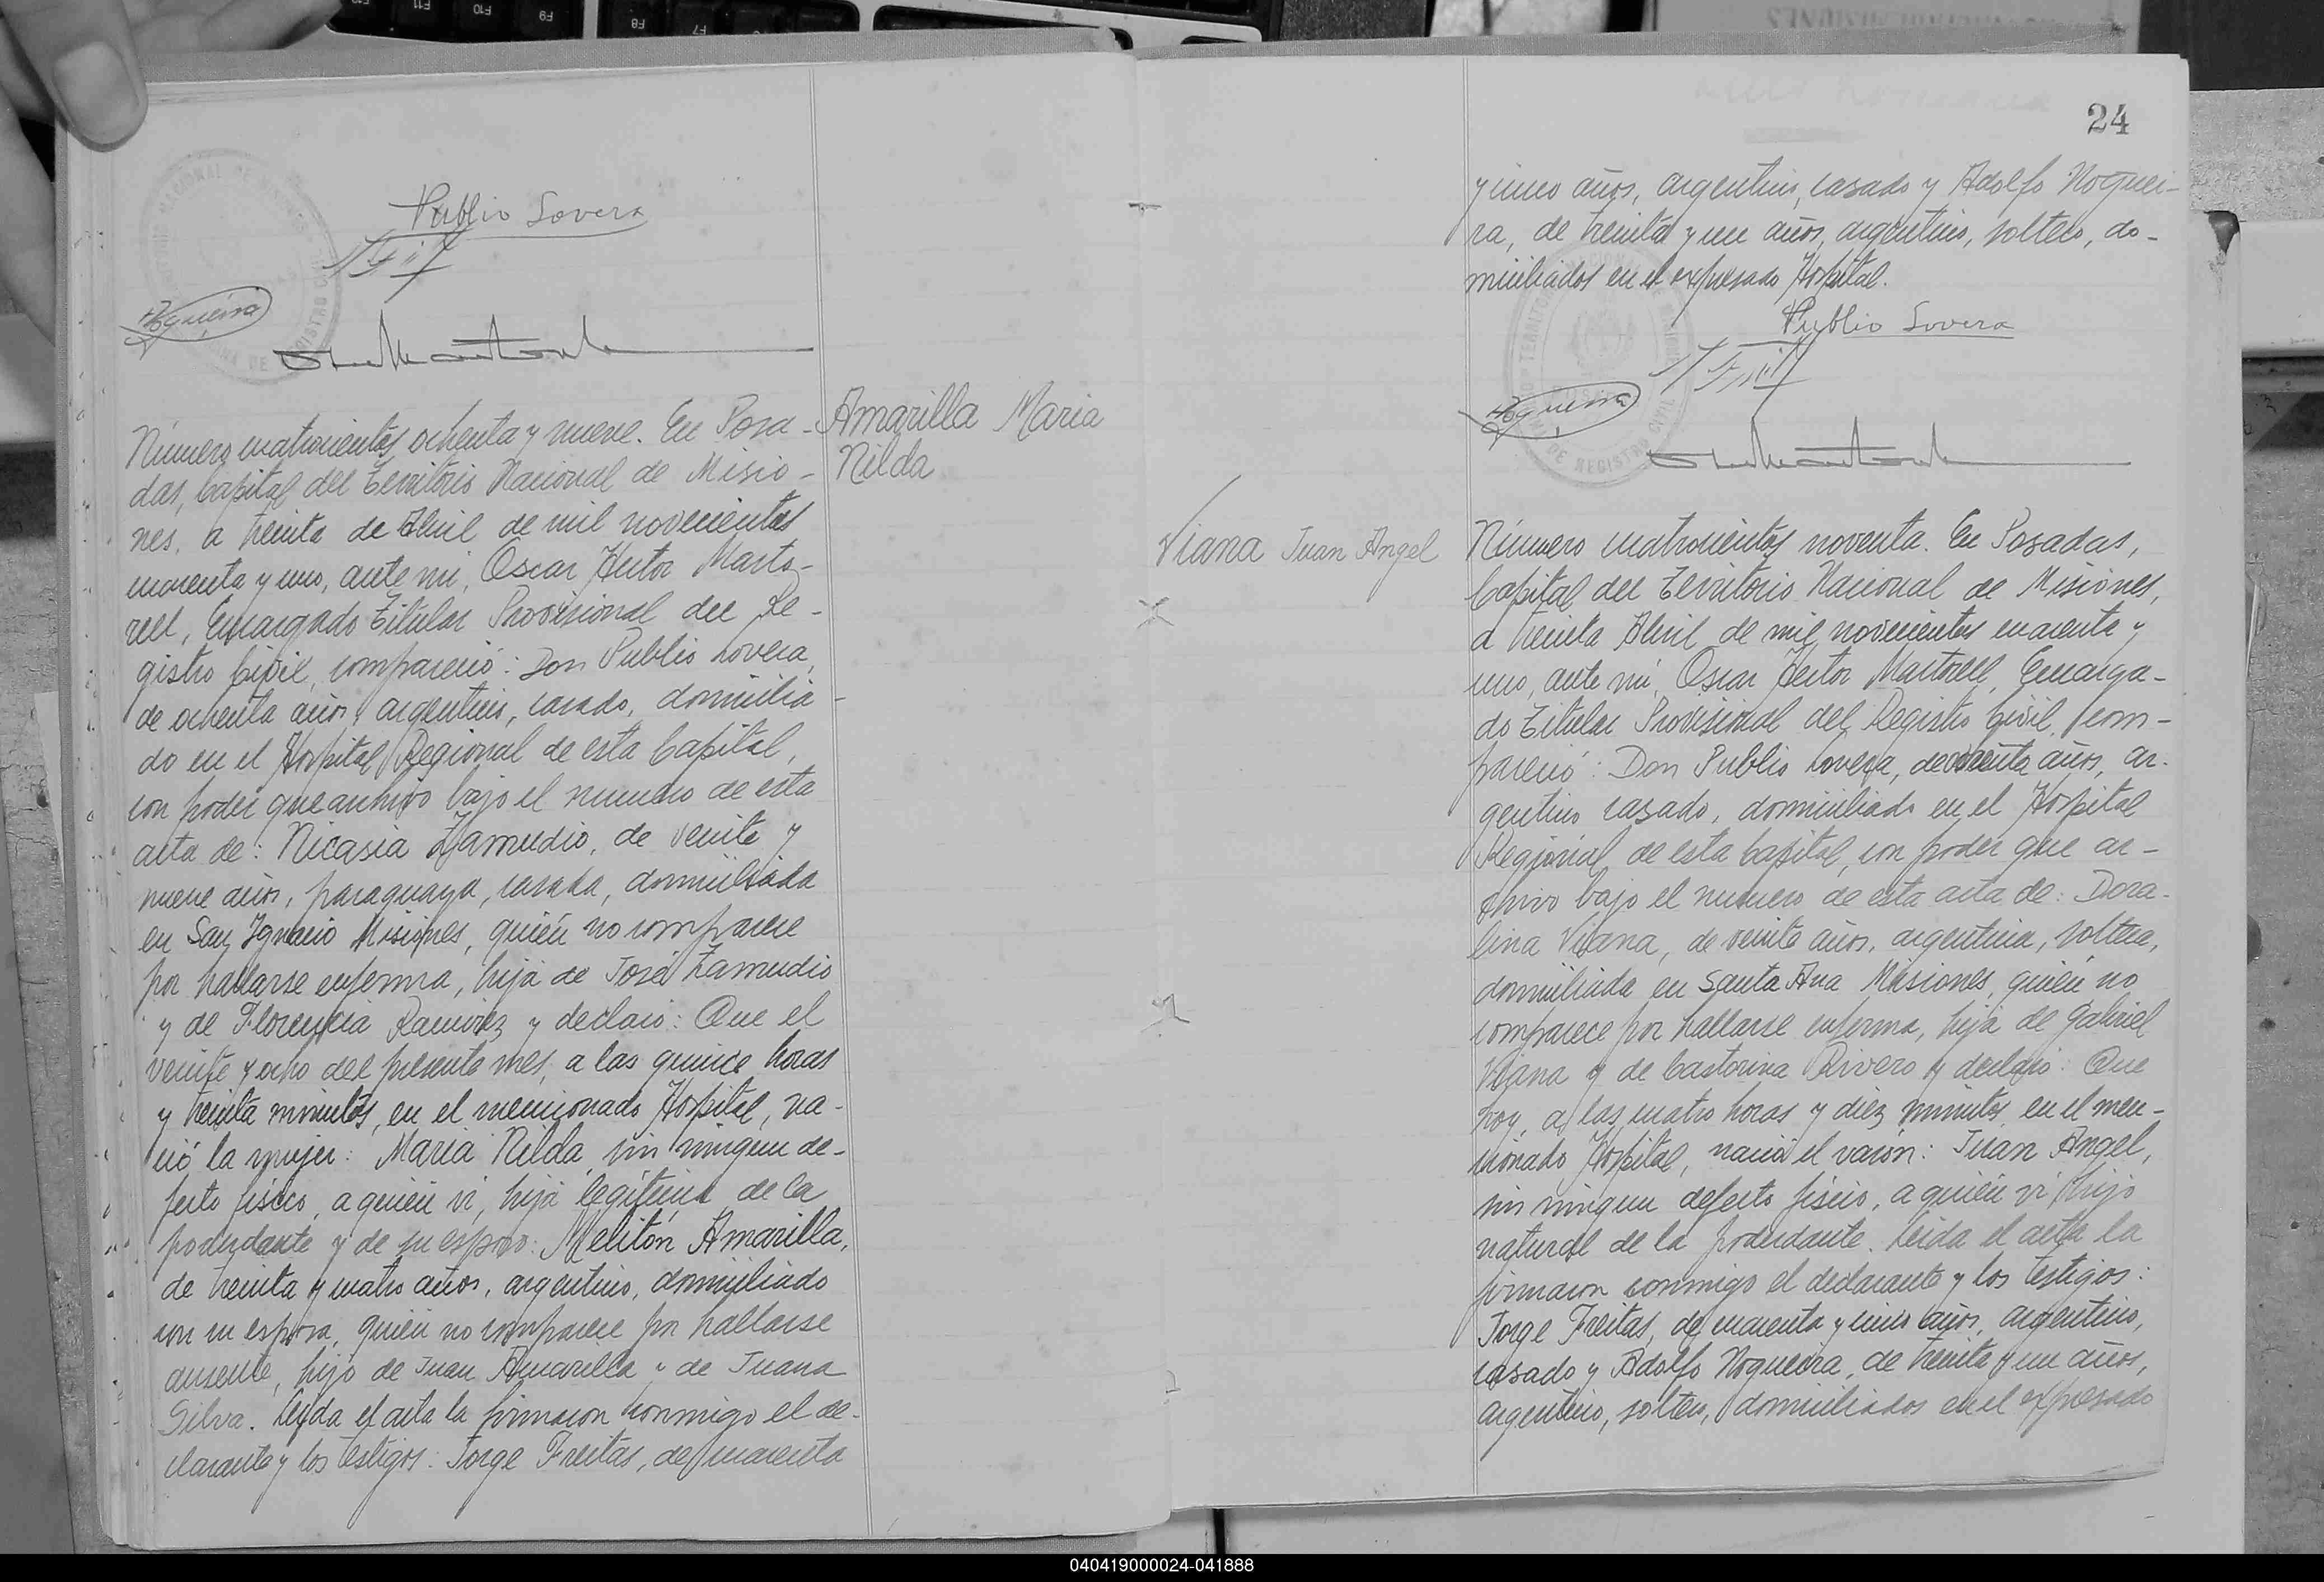 Publio Lovera
Nogueira
Número cuatrocientos ochenta y nueve. En Posa-
das, Capital del Territorio Nacional de Misio-
nes, a treinta de Abril de mil novecientos
cuarenta y uno, ante mi, Oscar Hector Marto-
rell, Encargado Titular Provisional del Re-
gistro Civil, compareció: Don Publio Lovera,
de ochenta años, argentino, casado, domicilia-
do en el Hospital Regional de esta Capital,
con poder que archivo bajo el numero de esta
acta de: Nicasia Zamudio, de veinte y
nueve años, paraguaya, casada, domiciliada
en San Ignacio Misiones, quién no comparece
por hallarse enferma, hija de José Zamudio
y de Florencia Ramirez y declaró: Que el
veinte y ocho del presente mes, a las quince horas
y treinta minutos, en el mencionado Hospital, na-
ció la mujer: Maria Nilda, sin ningun de-
fecto fisico, a quién vi, hija legitima de la
poderdante y de su esposo: Melitón Amarilla,
de treinta y cuatro años, argentino, domiciliado
con su esposa, quién no comparece por hallarse
ausente, hijo de Juan Amarilla y de Juana
Silva. Leída el acta la firmaron conmigo el de-
clarante y los testigos: Jorge Freitas, de cuarenta
Amarilla Maria
Nilda
24
y cinco años, argentino, casado y Adolfo Noguei-
ra, de treinta y un años, argentino, soltero, do-
miciliados en el expresado Hospital.
Publio Lovera
Nogueira
Viana Juan Angel
Número cuatrocientos noventa. En Posadas,
Capital del Territorio Nacional de Misiones,
a treinta Abril de mil novecientos cuarenta y
uno, ante mi, Oscar Hector Martorell, Encarga-
do Titular Provisional del Registro Civil, com-
pareció: Don Publio Lovera, de ochenta años, ar-
gentino casado, domiciliado en el Hospital
Regional de esta Capital, con poder que ar-
chivo bajo el numero de esta acta de: Dora-
lina Viana, de veinte años, argentina, soltera,
domiciliada en Santa Ana Misiones, quién no
comparece por hallarse enferma, hija de Gabriel
Viana y de Castorina Rivero y declaró: Que
hoy, a las cuatro horas y diez minutos, en el men-
cionado Hospital, nació el varón: Juan Angel,
sin ningun defecto fisico, a quién vi, hijo
natural de la poderdante. Leida el acta la
firmaron conmigo el declarante y los testigos:
Jorge Freitas, de cuarenta y cinco años, argentino,
casado y Adolfo Nogueira, de treinta y un años,
argentino, soltero, domiciliados en el expresado
040419000024-041888